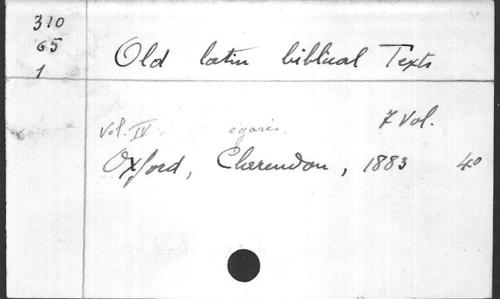 310
65
1
Old latin biblical Texts
7 Vol.
Vol. IV. égaré.
Oxford, Clarendon, 1883 4º